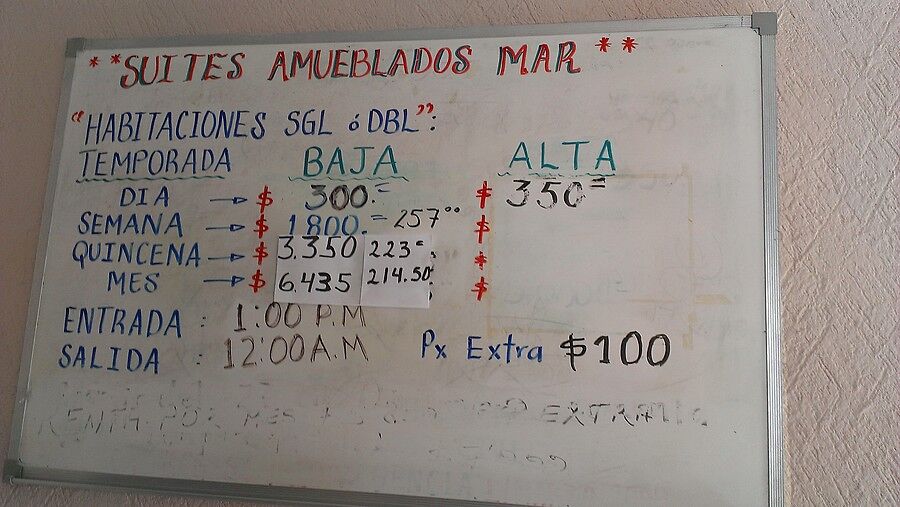 **SUITES AMUEBLADOS MAR**
"HABITACIONES SGL ó DBL":
TEMPORADA BAJA ALTA
DIA → $ 300.= $ 350=
SEMANA → $ 1800.= 257°° $
QUINCENA → $ 3.350 223= $
MES → $ 6.435 214.50 $
ENTRADA : 1:00 P.M
SALIDA : 12:00 A.M Px Extra $100
RENTA POR MES EXTRA